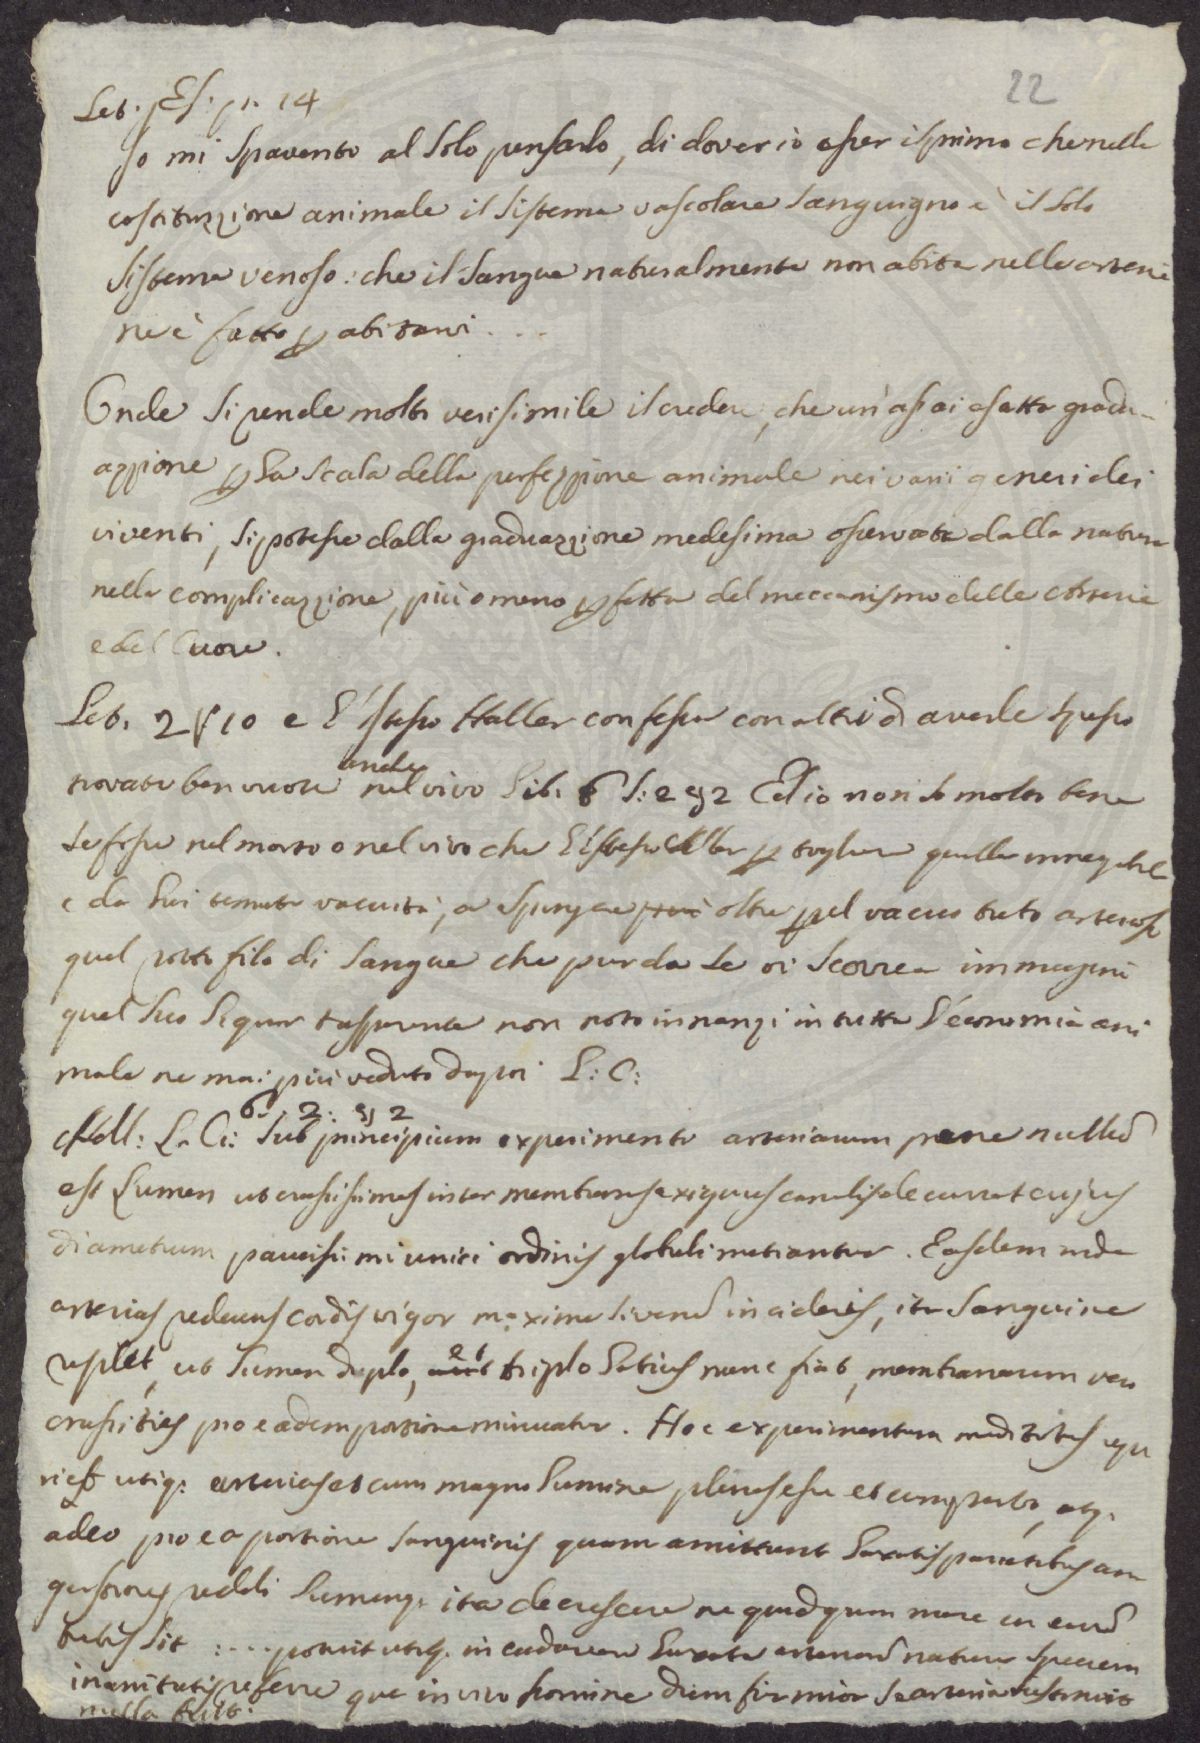 22
Let. p. 14
Io mi spavento al solo pensarlo, di dover io esser il primo che nella
costituzzione animale il sistema vascolare sanguigno è il solo
sistema venoso: che il sangue naturalmente non abita nelle arterie
ne è fatto p abitarvi ....
Onde si rende molto verisimile il credere, che un'assai esatta gradu-
azzione p la scala della perfezzione animale nei varii generi dei
viventi, si potesse dalla graduazzione medesima osservata dalla natura
nella complicazzione, più o meno pfetta del meccanismo delle arterie
e del Cuore.
Let. 2 f 10 e l'istesso Haller confessa con altri d averle spesso
trovate ben vuote anche nel vivo Lib. 6 S: 2 § 2 Ed io non so molto bene
se fosse nel morto o nel vivo che l'istesso Aller p togliere quella innegabile
e da lui temuta vacuità, a spingere oltre pel vacuo tubo arterioso
quel sottil filo di sangue che pur da se vi scorrea immaginò
quel suo liquor trasparente non noto innanzi in tutta l'economia ani
male ne mai più veduto dapoi L: C:
6. 2: § 2
Hall: L. C: Sub principium experimenti arteriarum pene nullum
est lumen ut crassissimas inter membranas exiguus canalis decurrat cujus
diametrum paucissimi unici ordinis globuli metiantur. Easdem inde
arterias redeuns cordis vigor maxime si venam incideris, ita sanguine
replet, ut lumen duplo, et triplo latius nunc fiat, membranarum vero
crassities pro eadem portione minuatur. Hoc experimentum meditatus repe
ries utiq: arterias et cum magno lumine plenas esse et compertas, atq.
adeo pro ea portione sanguinis quam amittunt laxatis parietibus an
gustiores reddi lumenq: ita decrescere ne quidquam inane in eorum
tubis sit :.... potuit utiq. in cadavere laxata arteriarum natura speciem
inanitatis preferre que in vivo homine dum firmior se arteria restrinxit
nulla fuit.